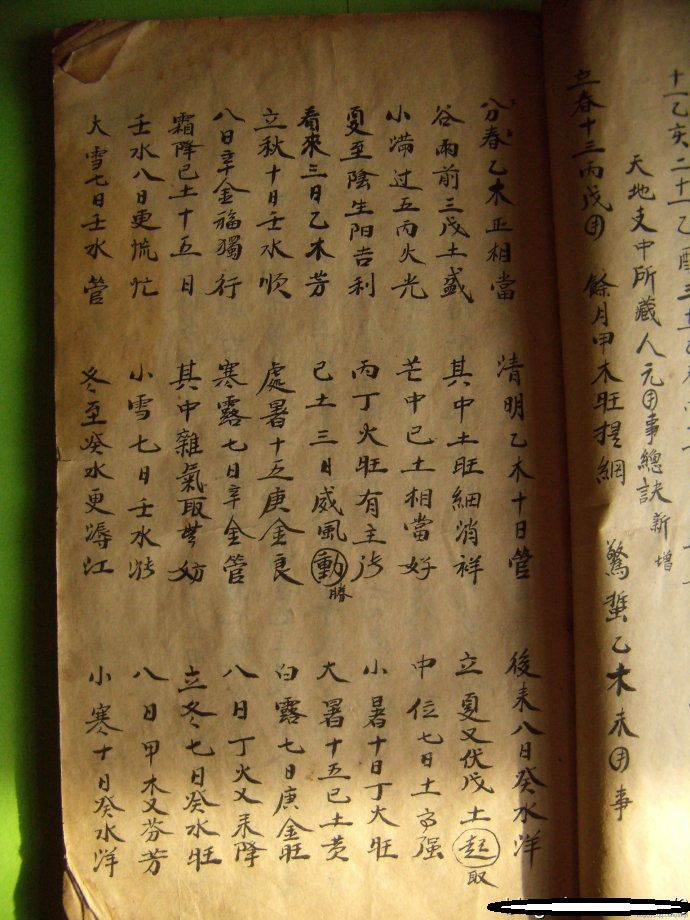 十一乙亥二十一乙酉三
天地支中所藏人元用事總訣 新增
立春十三丙戊用 餘月甲木旺提綱 驚蟄乙木未用事
分春乙木正相當 清明乙木十日管 後来八日癸水洋
谷雨前三戊土盛 其中土旺細消祥 立夏又伏戊土起 取
小滿过五丙火光 芒中己土相當好 中位七日土高强
夏至陰生阳吉利 丙丁火旺有主 小暑十日丁火旺
看來三日乙木芳 己土三日威風動 勝 大暑十五己土黄
立秋十日壬水順 處暑十五庚金良 白露七日庚金旺
八日辛金福獨行 寒露七日辛金管 八日丁火又来降
霜降己土十五日 其中雜氣取無妨 立冬七日癸水旺
壬水八日更慌忙 小雪七日壬水 八日甲木又芬芳
大雪七日壬水管 冬至癸水更江 小寒十日癸水洋